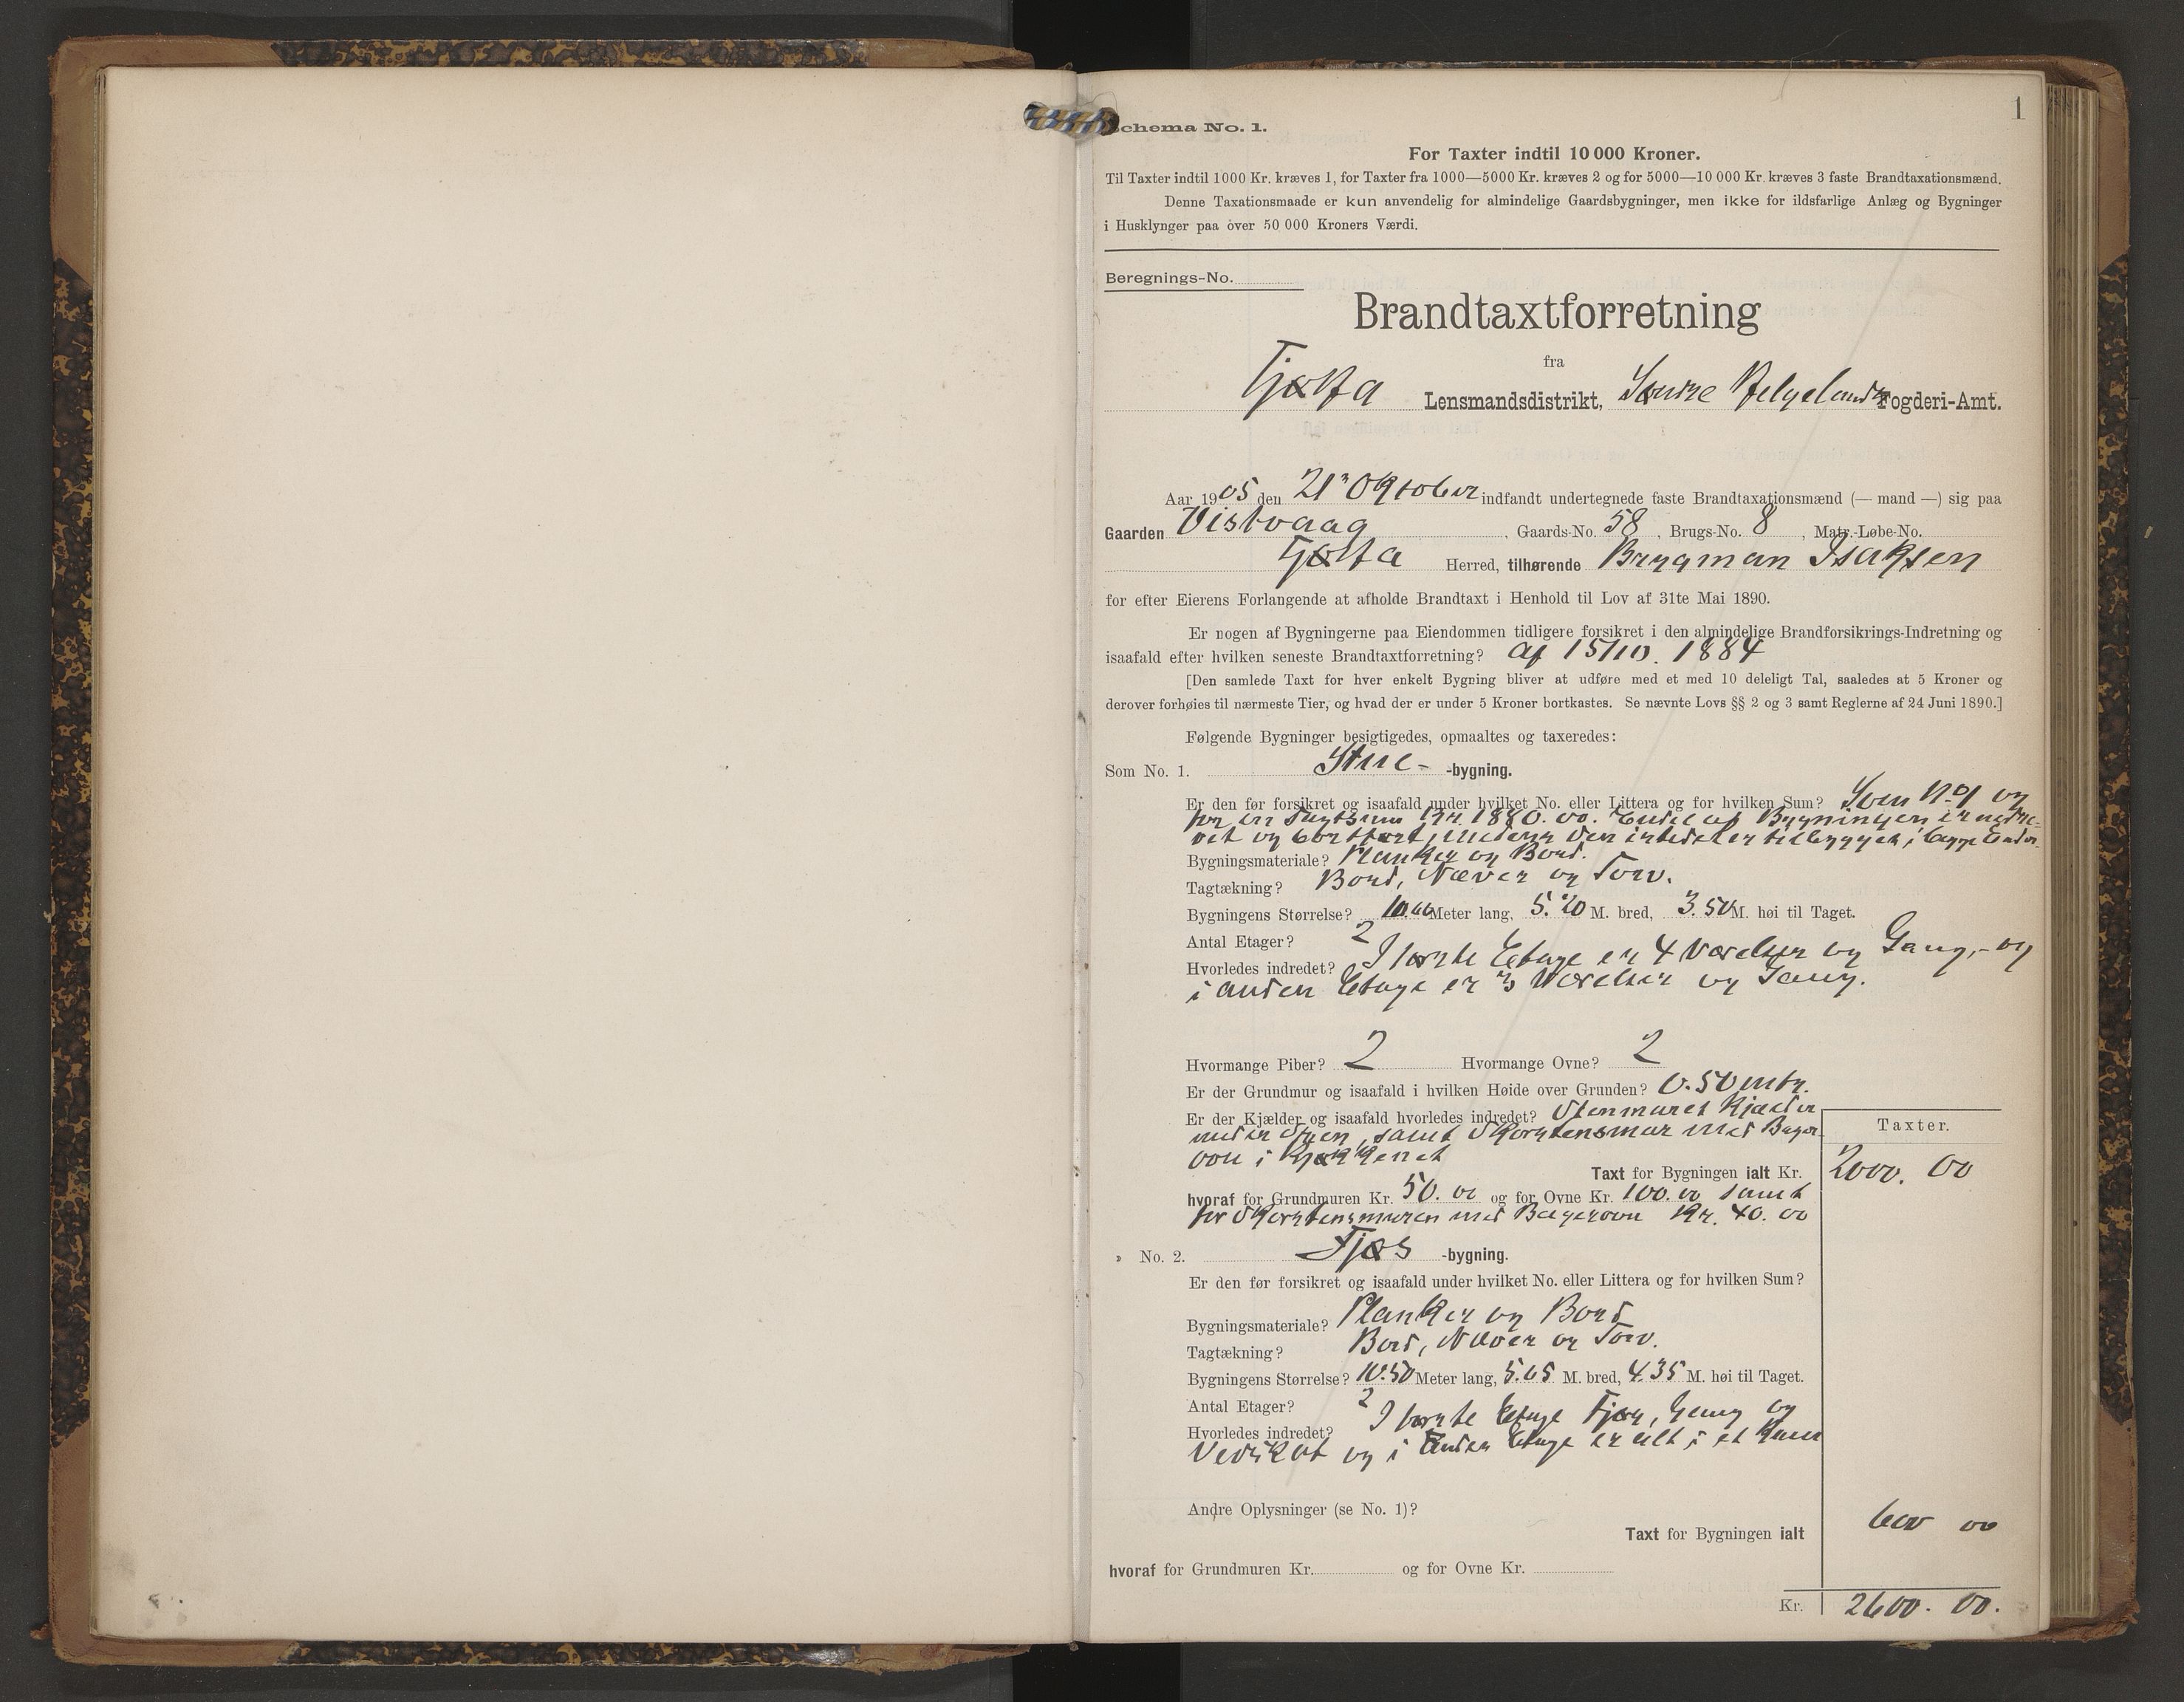 1
Schema No. 1.
For Taxter indtil 10 000 Kroner.
Til Taxter indtil 1000 Kr. kræves 1, for Taxter fra 1000—5000 Kr. kræves 2 og for 5000—10 000 Kr. kræves 3 faste Brandtaxationsmænd.
Denne Taxationsmaade er kun anvendelig for almindelige Gaardsbygninger, men ikke for ildsfarlige Anlæg og Bygninger
i Husklynger paa over 50 000 Kroners Værdi.
Beregnings-No.
Brandtaxtforretning
fra
Tjøtta Lensmandsdistrikt, Søndre Helgelands Fogderi-Amt.
Aar 1905 den 21n Oktober indfandt undertegnede faste Brandtaxationsmænd (— mand —) sig paa
Gaarden Vistvaag, Gaards-No. 58, Brugs-No. 8, Matr.-Løbe-No.
Tjøtta Herred, tilhørende Bergman Isaksen
for efter Eierens Forlangende at afholde Brandtaxt i Henhold til Lov af 31te Mai 1890.
Er nogen af Bygningerne paa Eiendommen tidligere forsikret i den almindelige Brandforsikrings-Indretning og
isaafald efter hvilken seneste Brandtaxtforretning? af 15/10. 1884
[Den samlede Taxt for hver enkelt Bygning bliver at udføre med et med 10 deleligt Tal, saaledes at 5 Kroner og
derover forhøies til nærmeste Tier, og hvad der er under 5 Kroner bortkastes. Se nævnte Lovs §§ 2 og 3 samt Reglerne af 24 Juni 1890.]
Følgende Bygninger besigtigedes, opmaaltes og taxeredes:
Som No. 1. Stue- -bygning.
Er den før forsikret og isaafald under hvilket No. eller Littera og for hvilken Sum? Som No 1 og
for en Kr. 1880. 00. Endel af Bygningen er nedre-
vet og bortført, medens den er tilbygget i begge Ender.
Bygningsmateriale? Planker og Bord.
Tagtækning? Bord, Næver og Torv.
Bygningens Størrelse? Meter lang, 5.20 M. bred, 3.50 M. høi til Taget.
Antal Etager? 2
Hvorledes indredet? I første Etage er 4 Værelser og Gang,- og
i anden Etage er 3 Værelser og Gang.
Hvormange Piber? 2 Hvormange Ovne? 2
Er der Grundmur og isaafald i hvilken Høide over Grunden? 0.50 mtr.
Er der Kjælder og isaafald hvorledes indredet? Stenmuret Kjælder
under Stuen, samt Skorstensmur med Bager-
ovn i Kjøkkenet
Taxter.
Taxt for Bygningen ialt Kr. 2000. 00
hvoraf for Grundmuren Kr. 50. 00 og for Ovne Kr. 100. 00 samt
for Skorstensmuren med Bagerovn Kr. 40. 00
» No. 2. Fjøs -bygning.
Er den før forsikret og isaafald under hvilket No. eller Littera og for hvilken Sum?
Bygningsmateriale? Planker og Bord
Tagtækning? Bord, Næver og Torv.
Bygningens Størrelse? 10.50 Meter lang, 5.65 M. bred, 4.35 M. høi til Taget.
Antal Etager? 2
Hvorledes indredet? I første Etage Fjøs, Gang og
Vedskot og i Anden Etage er alt i et Rum
Andre Oplysninger (se No. 1)?
Taxt for Bygningen ialt 600 00
hvoraf for Grundmuren Kr. og for Ovne Kr.
Kr. 2600. 00.